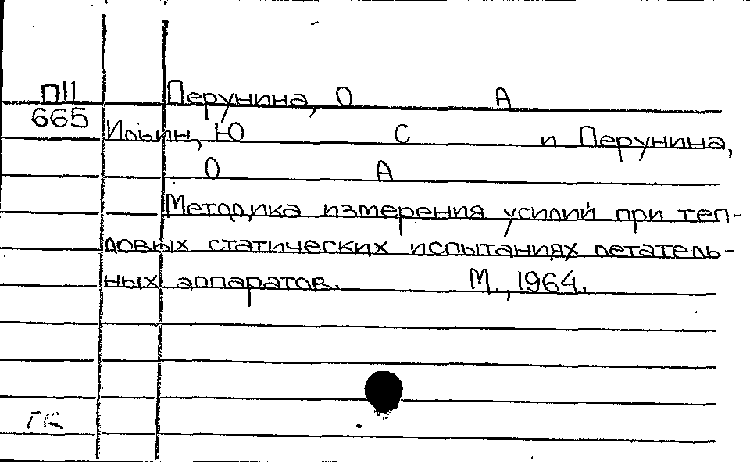 П11 Перунина, О А
665 Ильин, Ю С и Перунина,
О А
Методика измерения усилий при теп-
ловых статических испытаниях летатель-
ных аппаратов. М., 1964.